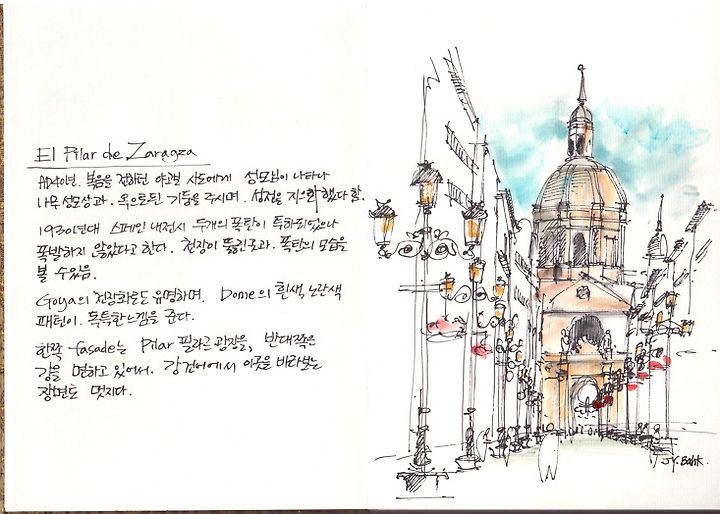 El Pilar de Zaragza
AD40년. 복음을 전하던 야고보 사도에게 성모님이 나타나
나무성모상과. 옥으로된 기둥을 주시며. 성전을 지으라 했다 함.
1930년대 스페인 내전시 두개의 폭탄이 투하되었으나
폭발하지 않았다고 한다. 천장이 뚫린곳과. 폭탄의 모습을
볼 수있음.
Goya의 천장화로도 유명하며. Dome의 흰색, 노란색
패턴이. 독특한 느낌을 준다.
한쪽 fasade는 Pilar 필라르 광장을, 반대쪽은
강을 면하고 있어서. 강건너에서 이곳을 바라보는
장면도 멋지다.
J.Y.Bahk.